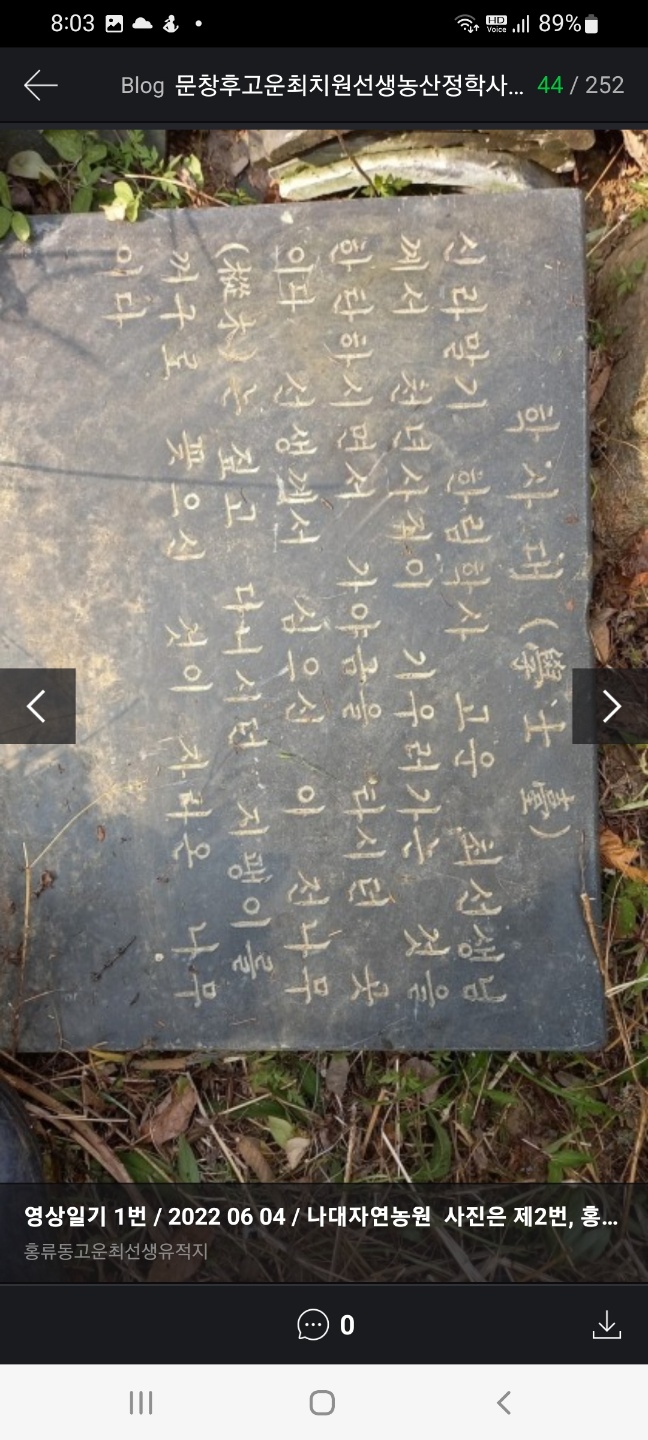 8:03
HD Voice
89%
Blog 문창후고운최치원선생농산정학사... 44 / 252
학사대(學士臺)
신라말기 한림학사 고운 최선생님
께서 천년사직이 기우러가는 것을
한탄하시면서 가야금을 타시던 곳
이다 선생께서 심우신 이 전나무
(樅木)는 짚고 다니시던 지팽이를
꺼구로 꽂으신 것이 자라온 나무
이다
영상일기 1번 / 2022 06 04 / 나대자연농원 사진은 제2번, 홍...
홍류동고운최선생유적지
0